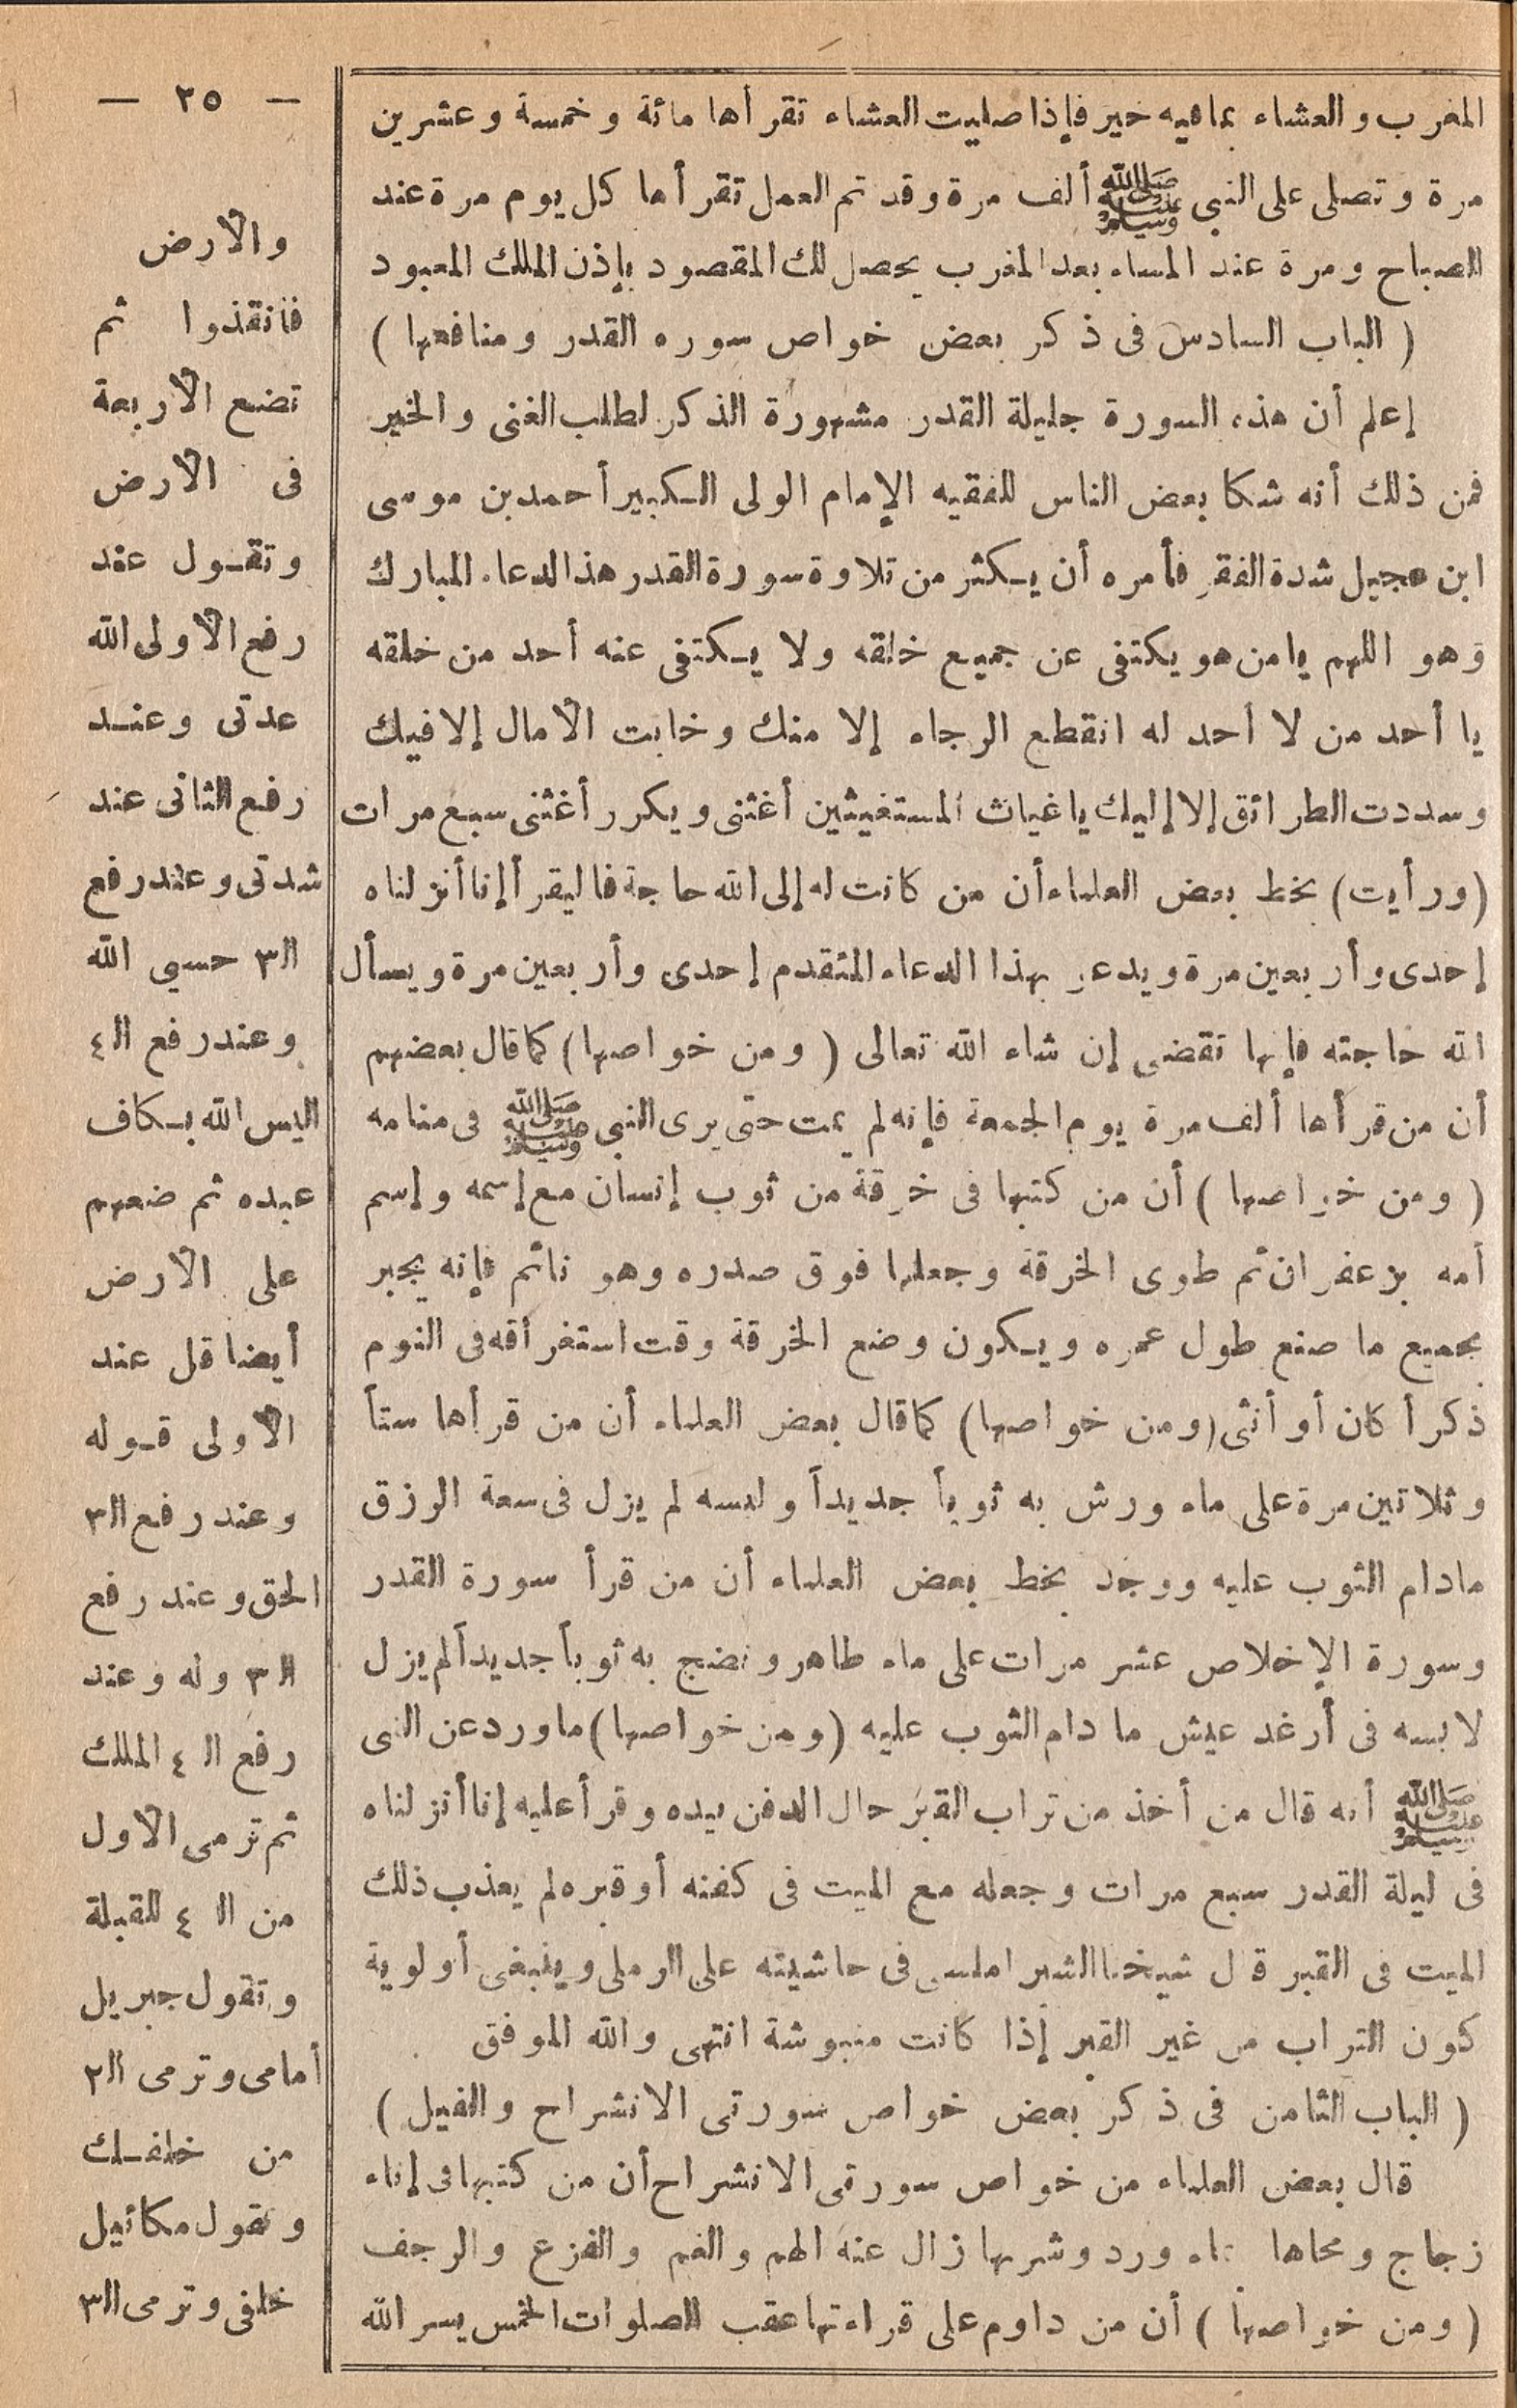 — ٢٥ —
المغرب والعشاء بمافيه خير فإذا صليت العشاء تقرأها مائة وخمسة وعشرين
مرة وتصلى على النبى ﷺ ألف مرة وقد تم العمل تقرأها كل يوم مرة عند
الصباح ومرة عند المساء بعد المغرب يحصل لك المقصود بإذن الملك المعبود
( الباب السادس فى ذكر بعض خواص سوره القدر ومنافعها )
إعلم أن هذه السورة جليلة القدر مشهورة الذكر لطلب الغنى والخير
فمن ذلك أنه شكا بعض الناس للفقيه الإمام الولى الكبير أحمد بن موسى
ابن عجيل شدة الفقر فأمره أن يكثر من تلاوة سورة القدر هذالدعاء المبارك
وهو اللهم يا من هو يكتفى عن جميع خلقه ولا يكتفى عنه أحد من خلقه
يا أحد من لا أحد له انقطع الرجاء إلا منك وخابت الآمال إلا فيك
وسددت الطرائق إلا إليك يا غياث المستغيثين أغثنى ويكرر أغثنى سبع مرات
(ورأيت) بخط بعض العلماء أن من كانت له إلى الله حاجة فاليقرأ إنا أنزلناه
إحدى وأربعين مرة ويدعو بهذا الدعاء المتقدم إحدى وأربعين مرة ويسأل
الله حاجته فإنها تقضى إن شاء الله تعالى ( ومن خواصها ) كما قال بعضهم
أن من قرأها ألف مرة يوم الجمعة فإنه لم يمت حتى يرى النبى ﷺ فى منامه
( ومن خواصها ) أن من كتبها فى خرقة من ثوب إنسان مع إسمه وإسم
أمه بزعفران ثم طوى الخرقة وجعلها فوق صدره وهو نائم فإنه يجبر
بجميع ما صنع طول عمره ويكون وضع الخرقة وقت استغرأقه فى النوم
ذكرأ كان أو أنثى (ومن خواصها) كما قال بعض العلماء أن من قرأها ستأ
وثلاتين مرة على ماء ورش به ثوبأ جديدأ ولبسه لم يزل فى سعة الرزق
مادام الثوب عليه ووجد بخط بعض العلماء أن من قرأ سورة القدر
وسورة الإخلاص عشر مرات على ماء طاهر ونضج به ثوبأ جديدأ لم يزل
لابسه فى أرغد عيش ما دام الثوب عليه (ومن خواصها) ما ورد عن النبى
ﷺ أنه قال من أخذ من تراب القبر حال الدفن بيده وقرأ عليه إنا أنزلناه
فى ليلة القدر سبع مرات وجعله مع الميت فى كفنه أو قبره لم يعذب ذلك
الميت فى القبر قال شيخنا الشبراملسى فى حاشيته على الرملى وينبغى أولوية
كون التراب من غير القبر إذا كانت منبوشة انتهى والله الموفق
( الباب الثامن فى ذكر بعض خواص سورتى الانشراح والفيل )
قال بعض العلماء من خواص سورتى الانشراح أن من كتبها فى إناء
زجاج ومحاها بماء ورد وشربها زال عنه الهم والغم والفزع والرجف
( ومن خواصها ) أن من داوم على قراءتها عقب الصلوات الخمس يسر الله
والأرض
فانقذوا ثم
تضع الأربعة
فى الأرض
وتقول عند
رفع الأولى الله
عدتى وعند
رفع الثانى عند
شدتى وعند رفع
ال٣ حسبى الله
وعند رفع ال٤
اليس الله بكاف
عبده ثم ضعهم
على الأرض
أيضا قل عند
الأولى قوله
وعند رفع ال٣
الحق وعند رفع
ال٣ وله وعند
رفع ال ٤ الملك
ثم ترمى الأول
من ال ٤ للقبلة
وتقول جبريل
أمامى وترمى ال٢
من خلفك
وتقول مكائيل
خلفى وترمى ال٣